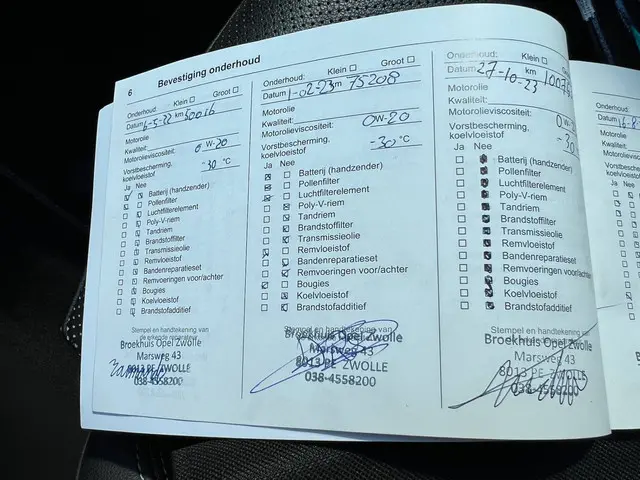 6 Bevestiging onderhoud
Onderhoud: Klein ☐ Groot ☐
Datum 6-5-22 km 50016
Motorolie
Kwaliteit:
Motorolieviscositeit: 0W-20
Vorstbescherming,
koelvloeistof -30 °C
Ja Nee
Batterij (handzender)
Pollenfilter
Luchtfilterelement
Poly-V-riem
Tandriem
Brandstoffilter
Transmissieolie
Remvloeistof
Bandenreparatieset
Remvoeringen voor/achter
Bougies
Koelvloeistof
Brandstofadditief
Stempel en handtekening van
Broekhuis Opel Zwolle
Marsweg 43
8013 PE ZWOLLE
038-4558200
Onderhoud: Klein ☐ Groot ☐
Datum 1-02-23 km 75208
Motorolie
Kwaliteit:
Motorolieviscositeit: 0W-20
Vorstbescherming,
koelvloeistof -30 °C
Ja Nee
Batterij (handzender)
Pollenfilter
Luchtfilterelement
Poly-V-riem
Tandriem
Brandstoffilter
Transmissieolie
Remvloeistof
Bandenreparatieset
Remvoeringen voor/achter
Bougies
Koelvloeistof
Brandstofadditief
Stempel en handtekening van
Broekhuis Opel Zwolle
Marsweg 43
8013 PE ZWOLLE
038-4558200
Onderhoud: Klein ☐ Groot ☐
Datum 27-10-23 km
Motorolie
Kwaliteit:
Motorolieviscositeit:
Vorstbescherming,
koelvloeistof -30
Ja Nee
Batterij (handzender)
Pollenfilter
Luchtfilterelement
Poly-V-riem
Tandriem
Brandstoffilter
Transmissieolie
Remvloeistof
Bandenreparatieset
Remvoeringen voor/achter
Bougies
Koelvloeistof
Brandstofadditief
Stempel en handtekening van
Broekhuis Opel Zwolle
Marsweg 43
8013 PE ZWOLLE
038-4558200